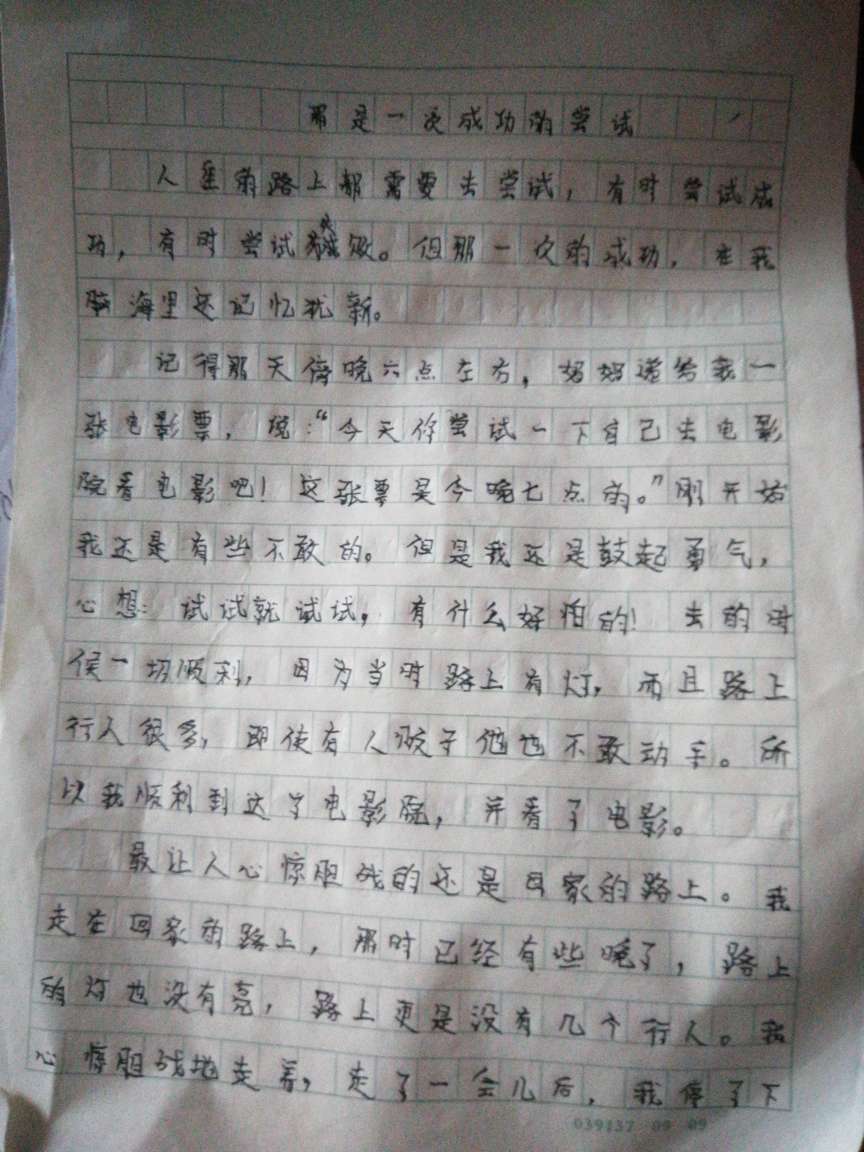 那是一次成功的尝试
人生的路上都需要去尝试，有时尝试成
功，有时尝试失败。但那一次的成功，在我
脑海里还记忆犹新。
记得那天傍晚六点左右，妈妈递给我一
张电影票，说：“今天你尝试一下自己去电影
院看电影吧！这张票是今晚七点的。”刚开始
我还是有些不敢的。但是我还是鼓起勇气，
心想：试试就试试，有什么好怕的！去的时
候一切顺利，因为当时路上有灯，而且路上
行人很多，即使有人贩子他也不敢动手。所
以我顺利到达了电影院，并看了电影。
最让人心惊胆战的还是回家的路上。我
走在回家的路上，那时已经有些晚了，路上
的灯也没有亮，路上更是没有几个行人。我
心惊胆战地走着，走了一会儿后，我停了下
039137 09 09